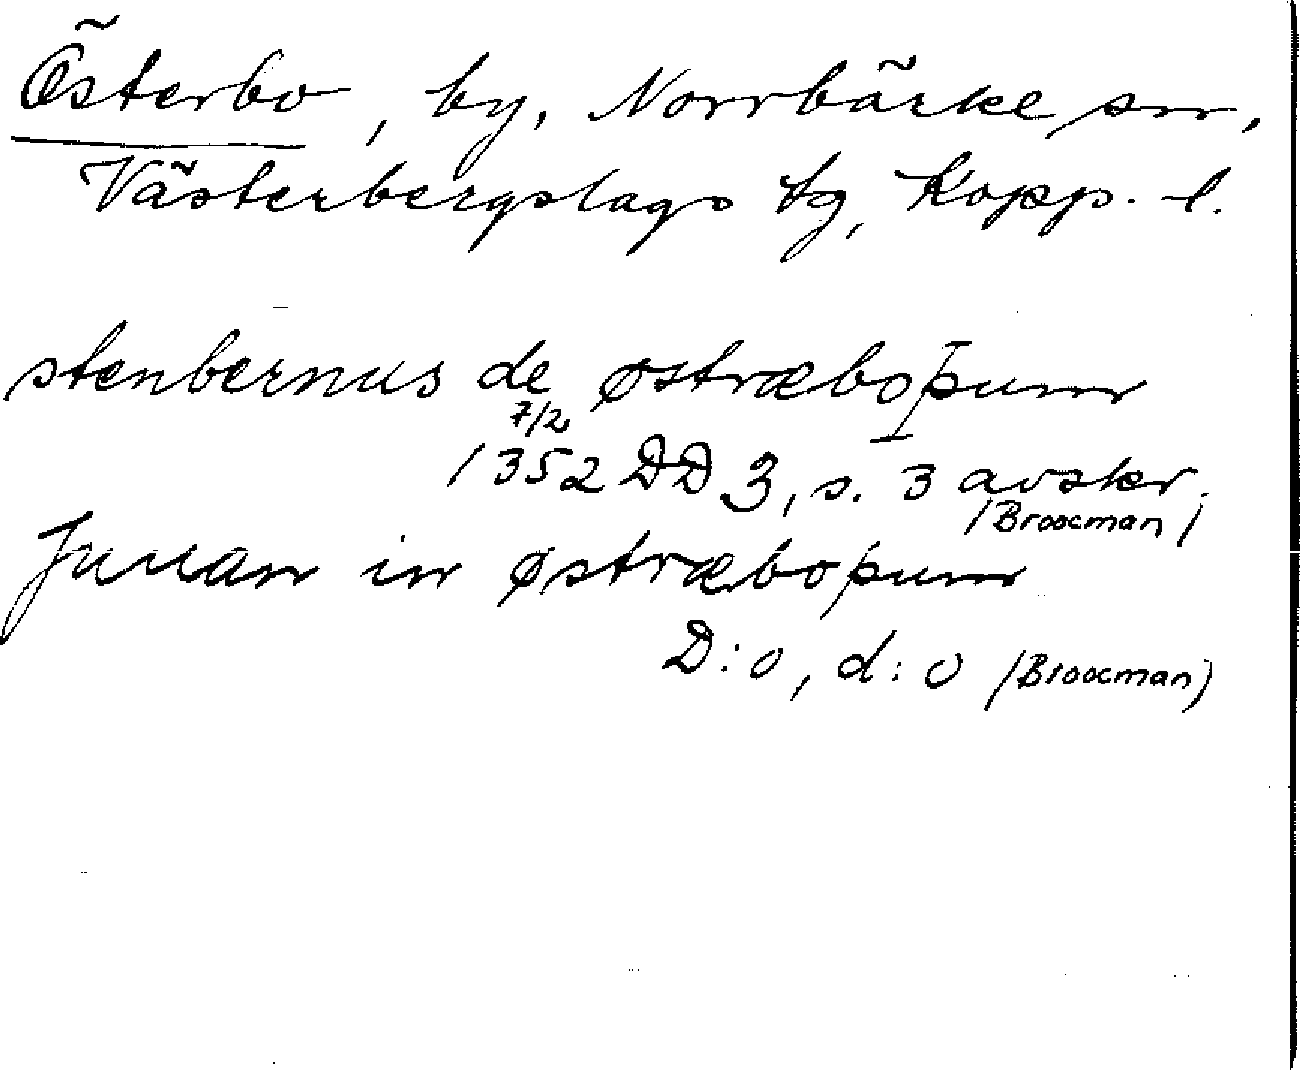 Österbo, by, Norrbärke sn,
Västerbergslags tg, Kopp. l.
stenbernus de østræboþum
7/2
1352 DD 3, s. 3 avskr.
(Broocman)
in østræboþum
D:o, d:o (Broocman)